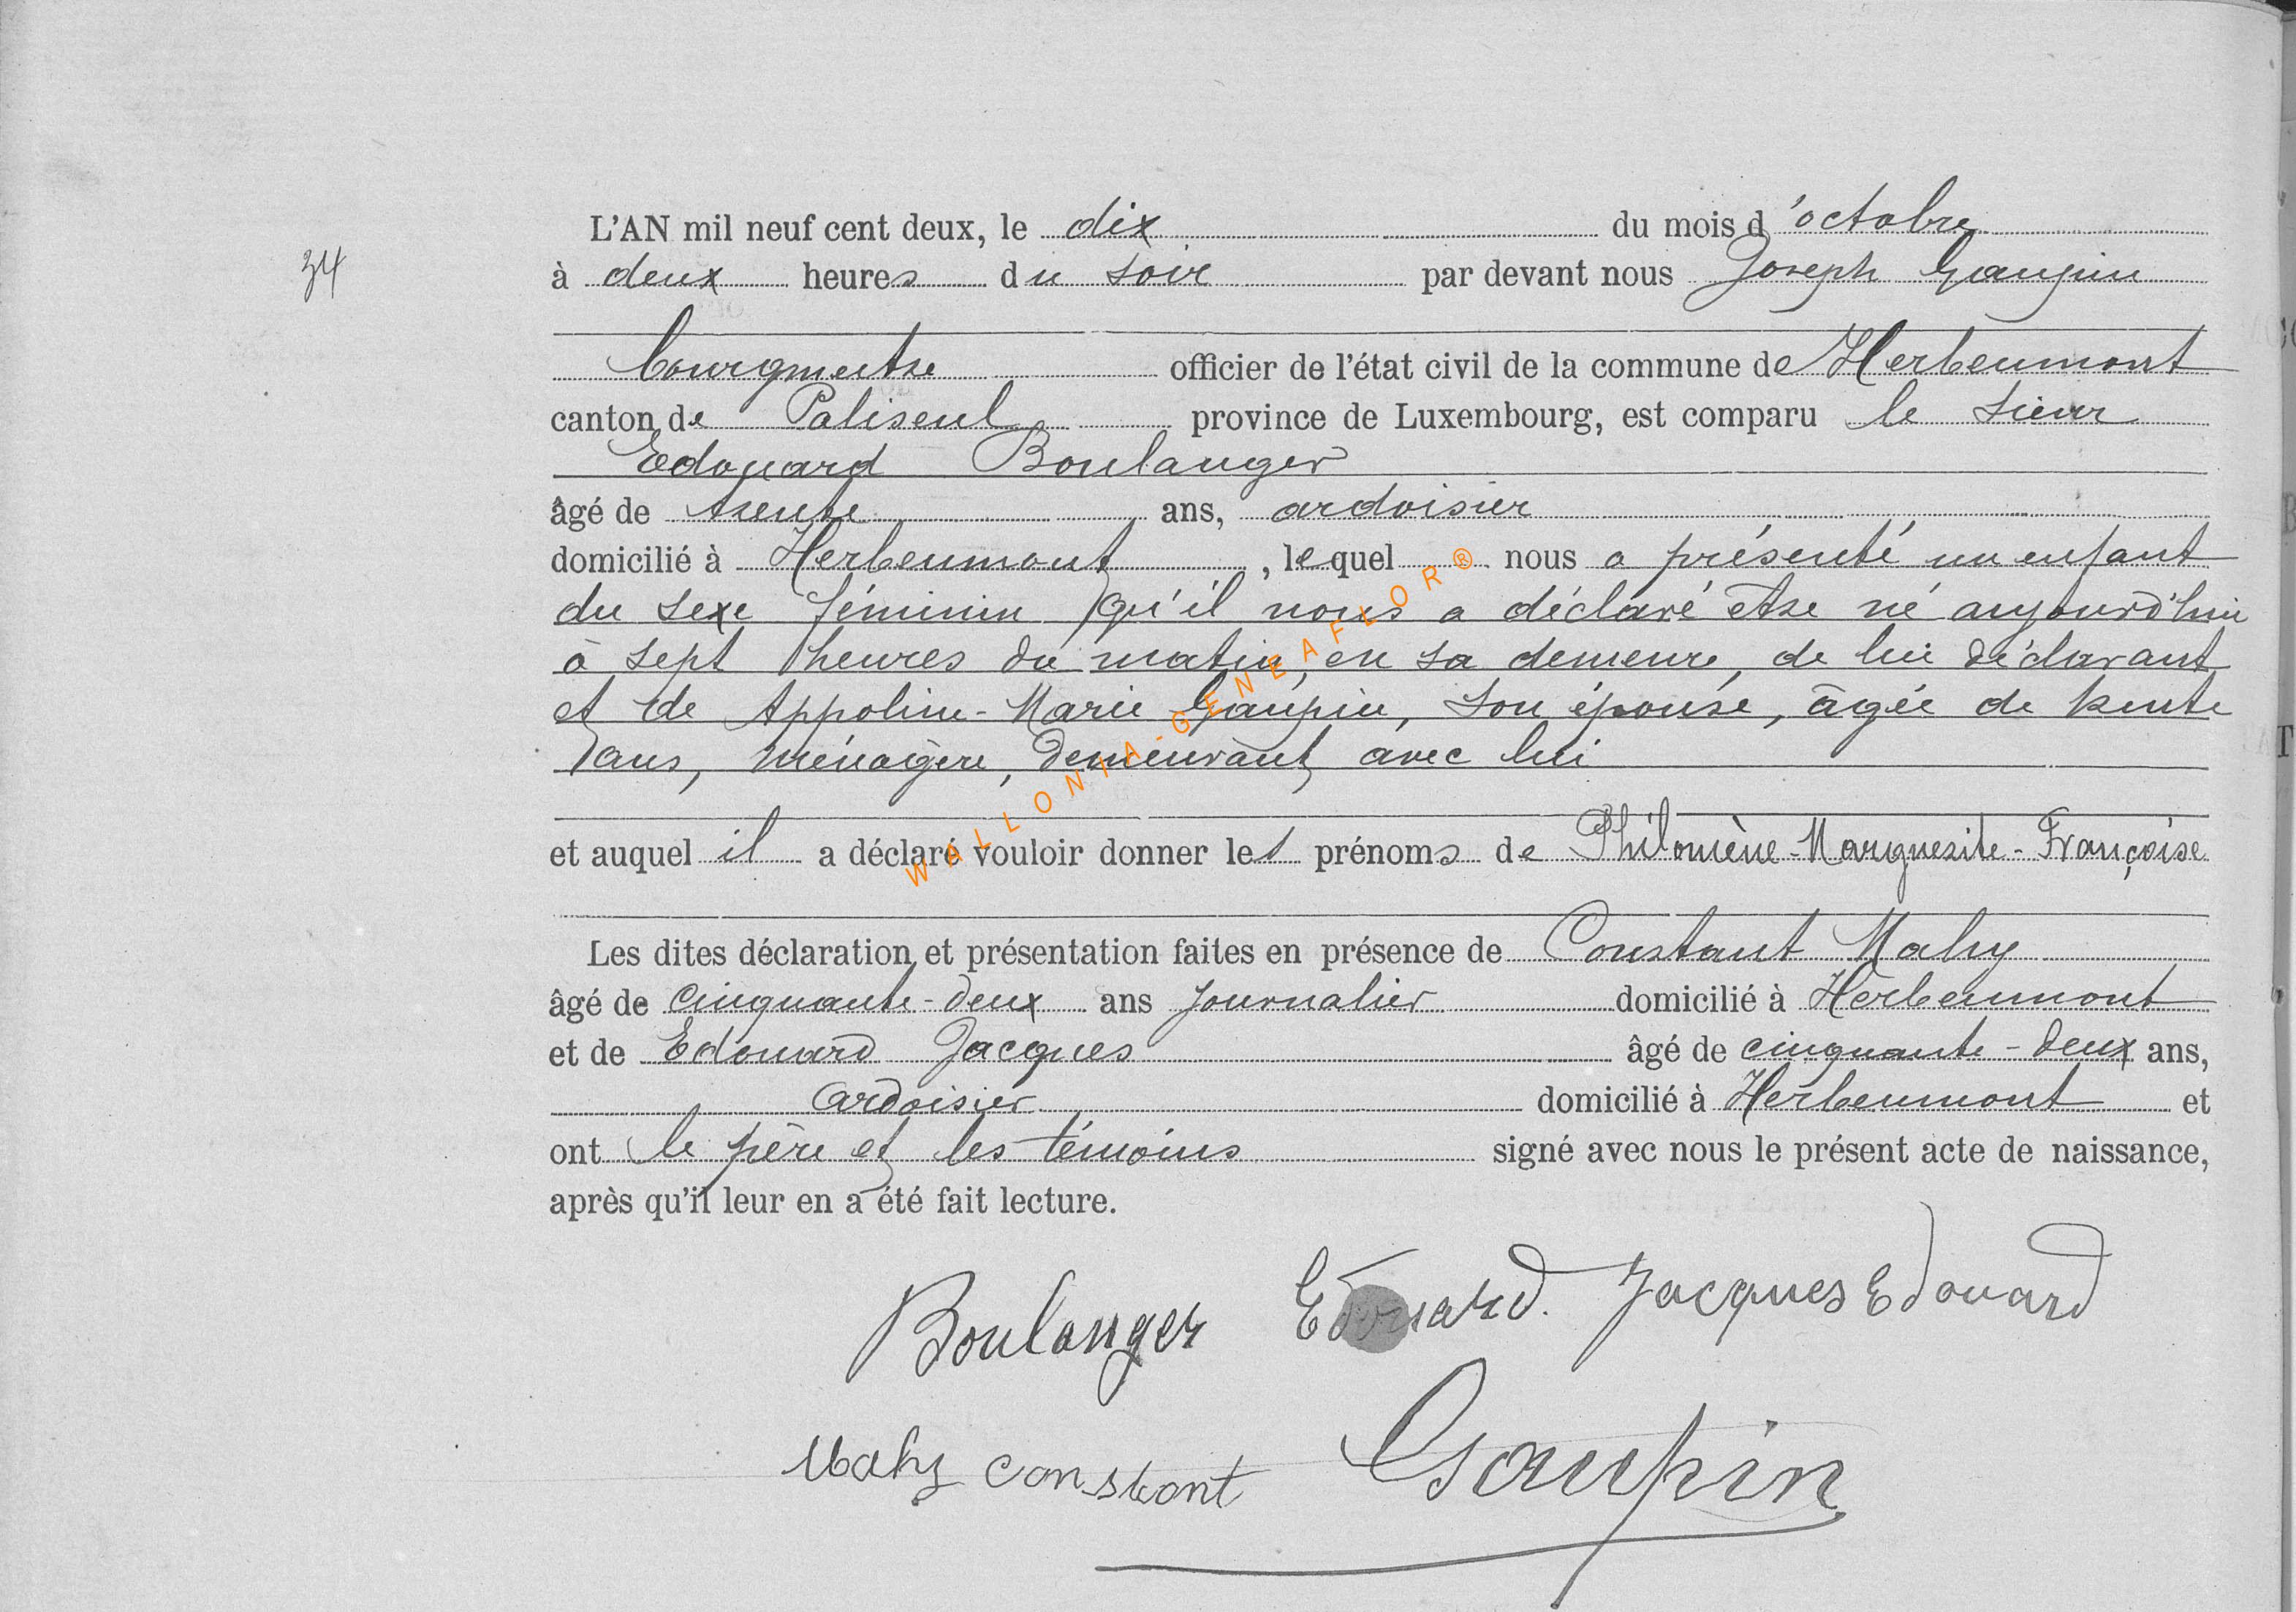 L'AN mil neuf cent deux, le dix du mois d'octobre
34
à deux heures du soir par devant nous Joseph Gaupin
bourgmestre officier de l'état civil de la commune de Herbeumont
canton de Paliseul province de Luxembourg, est comparu le sieur
Edouard Boulanger
âgé de trente ans, ardoisier
domicilié à Herbeumont, lequel nous a présenté un enfant
du sexe féminin qu'il nous a déclaré être né aujourd'hui
à sept heures du matin, en sa demeure, de lui déclarant
et de Appoline-Marie Gaupin, son épouse, âgée de trente
ans, ménagère, demeurant avec lui
et auquel il a déclaré vouloir donner les prénoms de Philomène-Marguerite-Françoise
Les dites déclaration et présentation faites en présence de Constant Mahy
âgé de cinquante-deux ans journalier domicilié à Herbeumont
et de Edouard Jacques âgé de cinquante-deux ans,
ardoisier domicilié à Herbeumont et
ont le père et les témoins signé avec nous le présent acte de naissance,
après qu'il leur en a été fait lecture.
Boulanger Edouard. Jacques Edouard
Mahy constant Gaupin
WALLONIA-GENEAFLOR®